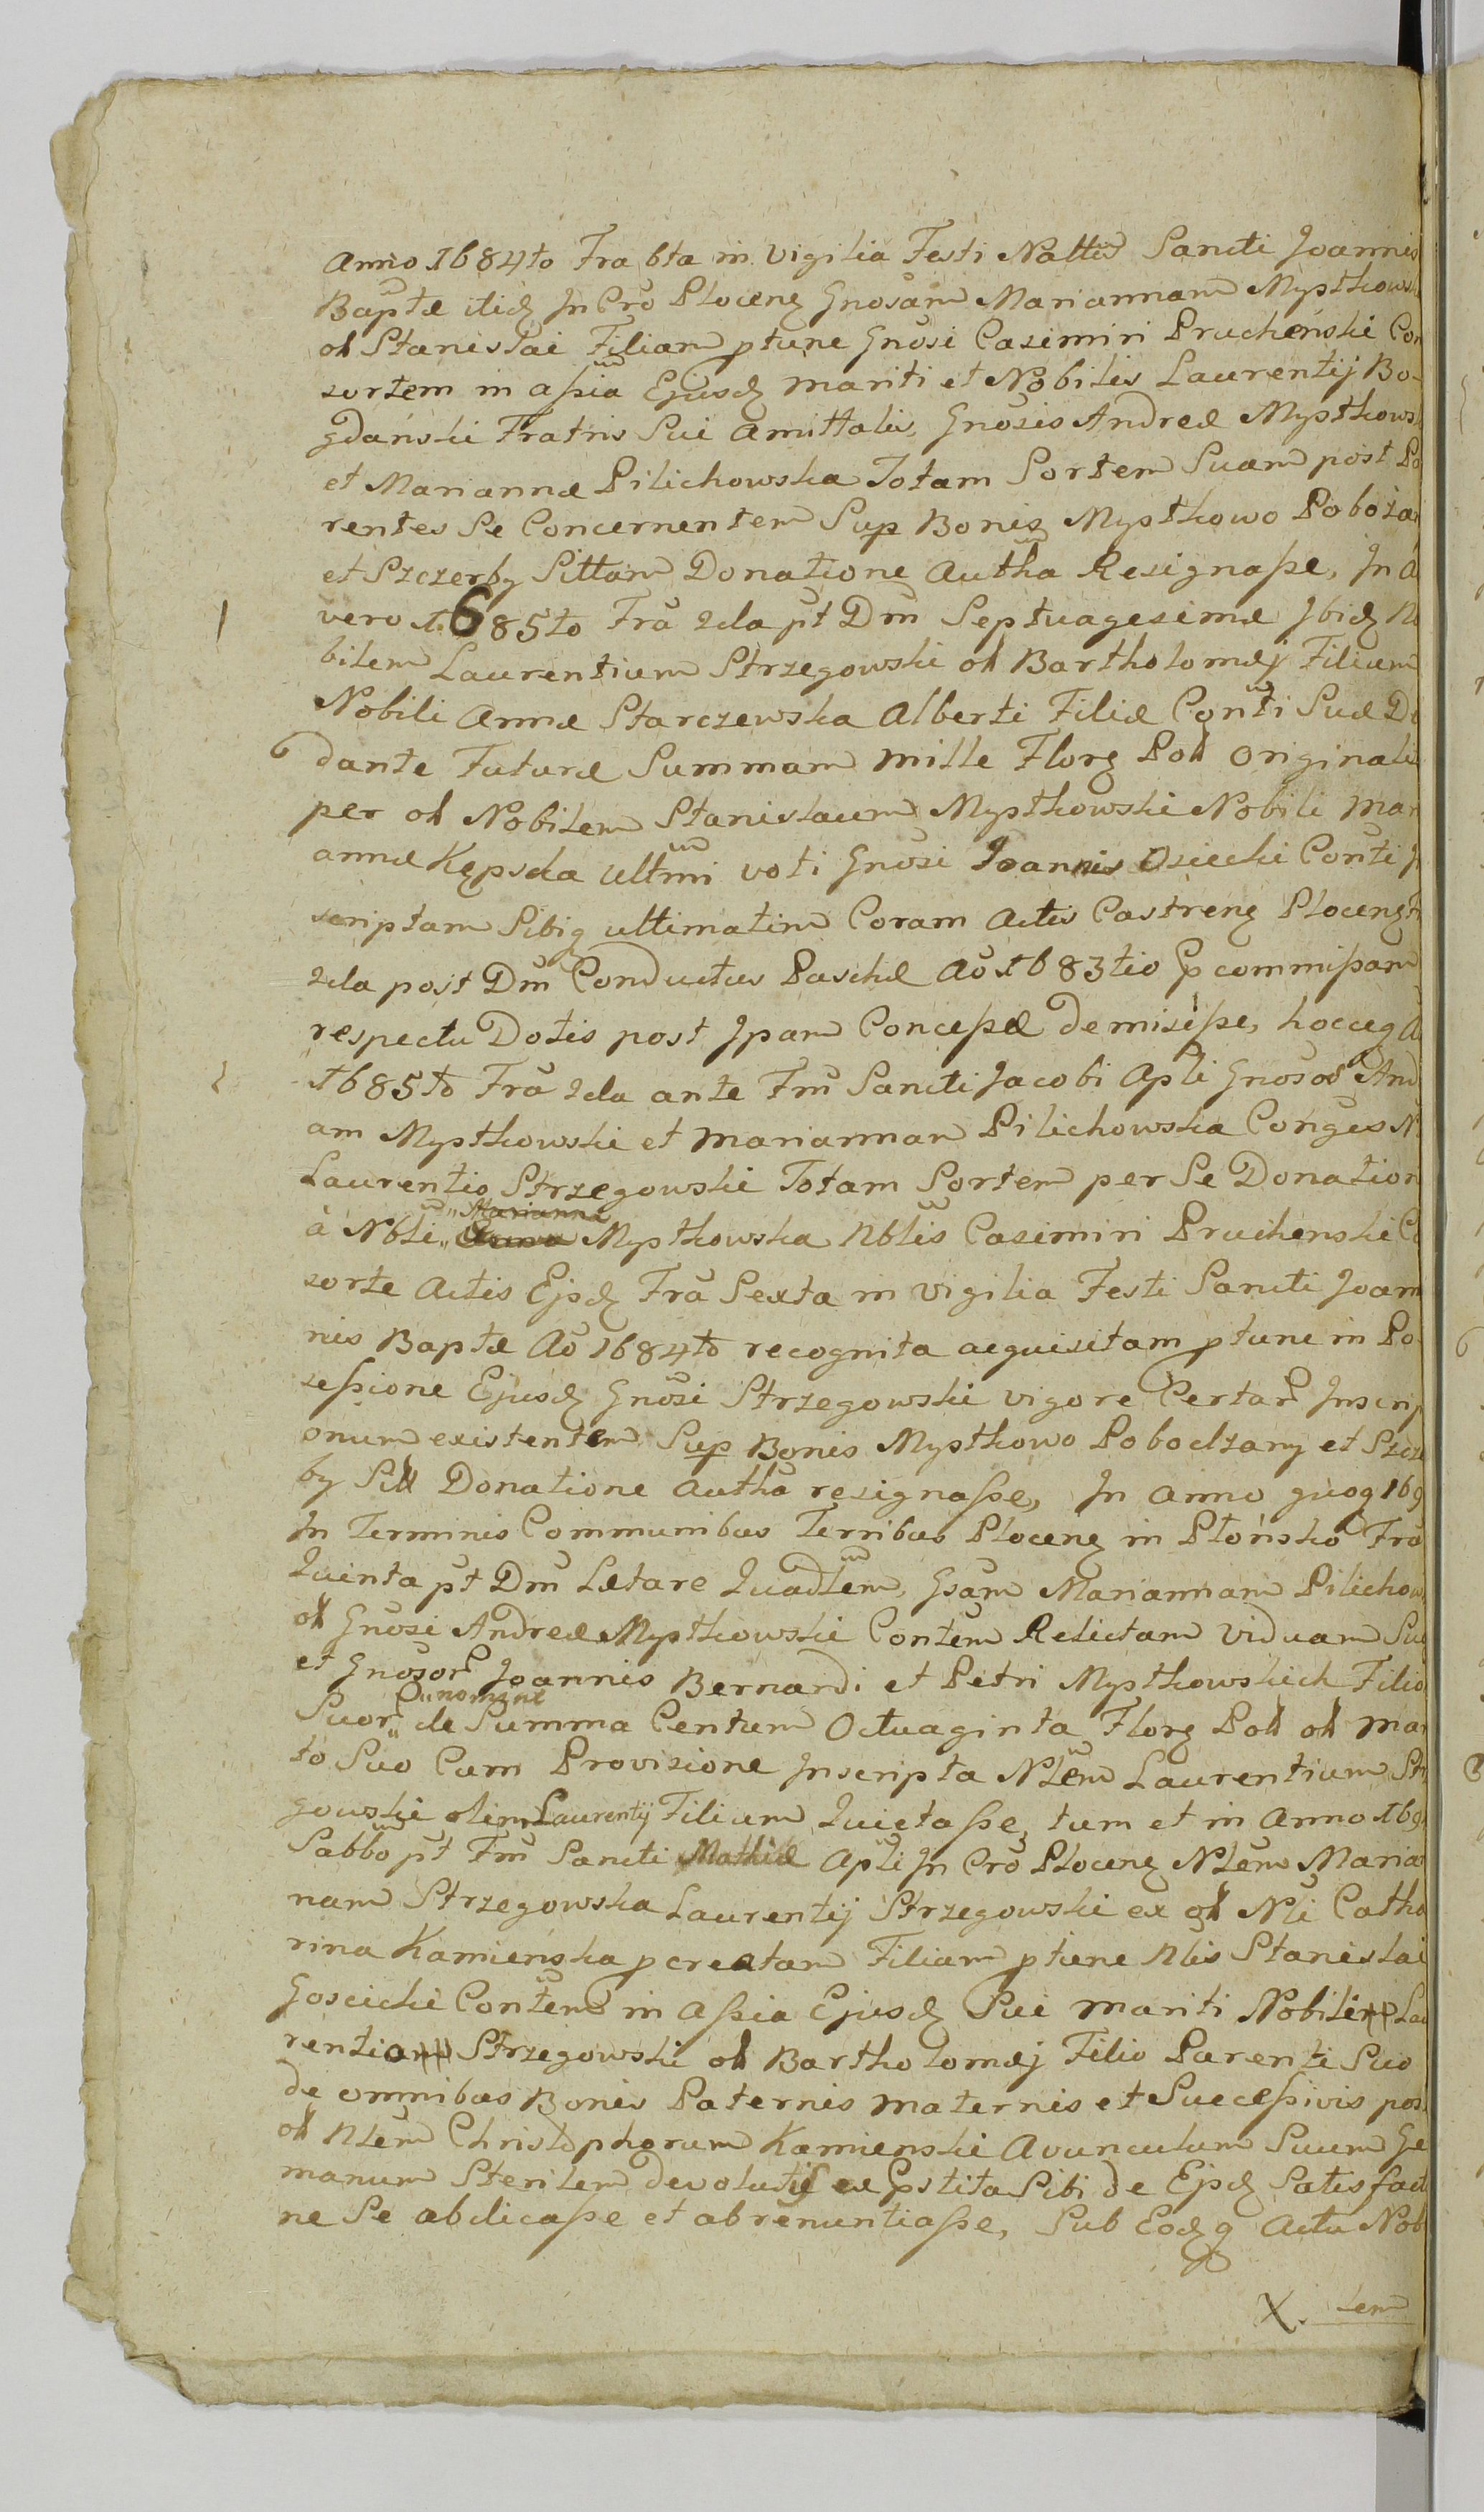 Anno 1684to Fra 6ta in Vigilia Festi Nattis Sancti Joannis
Baptæ itidz In Cro Plocenz Gnosam Mariannam Mystkows
ol Stanislai Filiam ptunc Gnosi Casimiri Pruchenski Con
sortem in assia Ejusdz mariti et Nobilis Laurentij Bo-
gdanski Fratris Sui Amittalis, Gnosis Andreæ Mystkows
et Mariannæ Pilichowska Totam Sortem Suam post Pa
rentes Se Concernentem Sup Bonis Mystkowo Pobodza
et Szczerby Sittam Donatione Autha Resignasse, In A
vero 1685to Fra 2da pt Dm Septuagesimæ Ibidz No
bilem Laurentium Strzegowski ol Bartholomæj Filium
Nobili Annæ Starczewska Alberti Filiæ Conti Suæ De
dante Futuræ Summam mille Florz Poll Originali
per ol Nobilem Stanislaum Mystkowski Nobili Mar
annæ Kępska ultmi voti Gnosi Joannis Osiecki Conti J
scriptam Sibiq ultimatim Coram Actis Castrenz Plocenz
2da post Dm Conductus Paschæ Ao 1683tio Ep commissam
respectu Dotis post Ipam Concessæ demisisse, hocceq A
1685to Fra 2da ante Fm Sancti Jacobi Apli Gnosos And
am Mystkowski et Mariannam Pilichowska Conges N
Laurentio Strzegowski Totam Sortem per Se Donation
"Marianna
à Nbli "Anna Mystkowska Nblis Casimiri Pruchenski Co
sorte Actis Ejsdz Fra Sexta in Vigilia Festi Sancti Joan
nis Baptæ Ao 1684to recognita acquisitam ptunc in Po
sessione Ejusdz Gnosi Strzegowski vigore Certar Inscrip
onum existentem Sup Bonis Mystkowo Pobodzany et Szcze
by Sill Donatione Autha resignasse, In Anno quoq 169
In Terminis Communibus Terribus Plocenz in Płońsko Fra
Quinta pt Dm Lætare Quadlem, Gsam Mariannam Pilichow
ol Gnosi Andreæ Mystkowski Contem Relictam Viduam Suo
et Gnosor Joannis Bernardi et Petri Mystkowskich Filio
"nomine
Suor" de Summa Centum Octuaginta Florz Poll ol Mar
to Suo Cum Provisione Inscripta Nlem Laurentium Str
gowski olim Laurentij Filium Quietasse, tum et in Anno 169
Sabbo pt Fm Sancti Mathiæ Apli In Cro Plocenz Nlem Marian
nam Strzegowska Laurentij Strzegowski ex ol Nli Catha
rina Kamienska pcreatam Filiam ptunc Nlis Stanislai
Goscicki Contem in Assia Ejusdz Sui Mariti Nobili Lau
rentio Strzegowski ol Bartholomæj Filio Parenti Suo
de omnibus Bonis Paternis Maternis et Successivis pos
ol Nlem Christophorum Kamienski Avunculum Suum Ge
manum Sterilem devolutis ex Epstita Sibi de Ejsdz Satisfact
ne Se abdicasse et abrenuntiasse, Sub Eodzq Actu Nob
X. lem